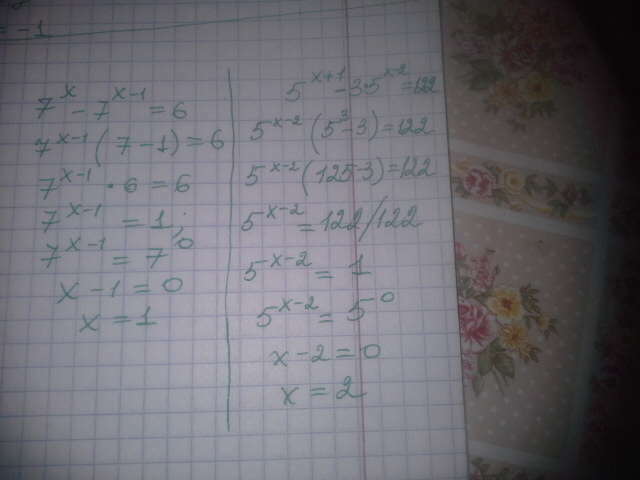 = -1
7^x - 7^{x-1} = 6
7^{x-1} (7 - 1) = 6
7^{x-1} · 6 = 6
7^{x-1} = 1;
7^{x-1} = 7^0
x - 1 = 0
x = 1
5^{x+1} - 3 5^{x-2} = 122
5^{x-2} (5^3 - 3) = 122
5^{x-2} (125 - 3) = 122
5^{x-2} = 122/122
5^{x-2} = 1
5^{x-2} = 5^0
x - 2 = 0
x = 2